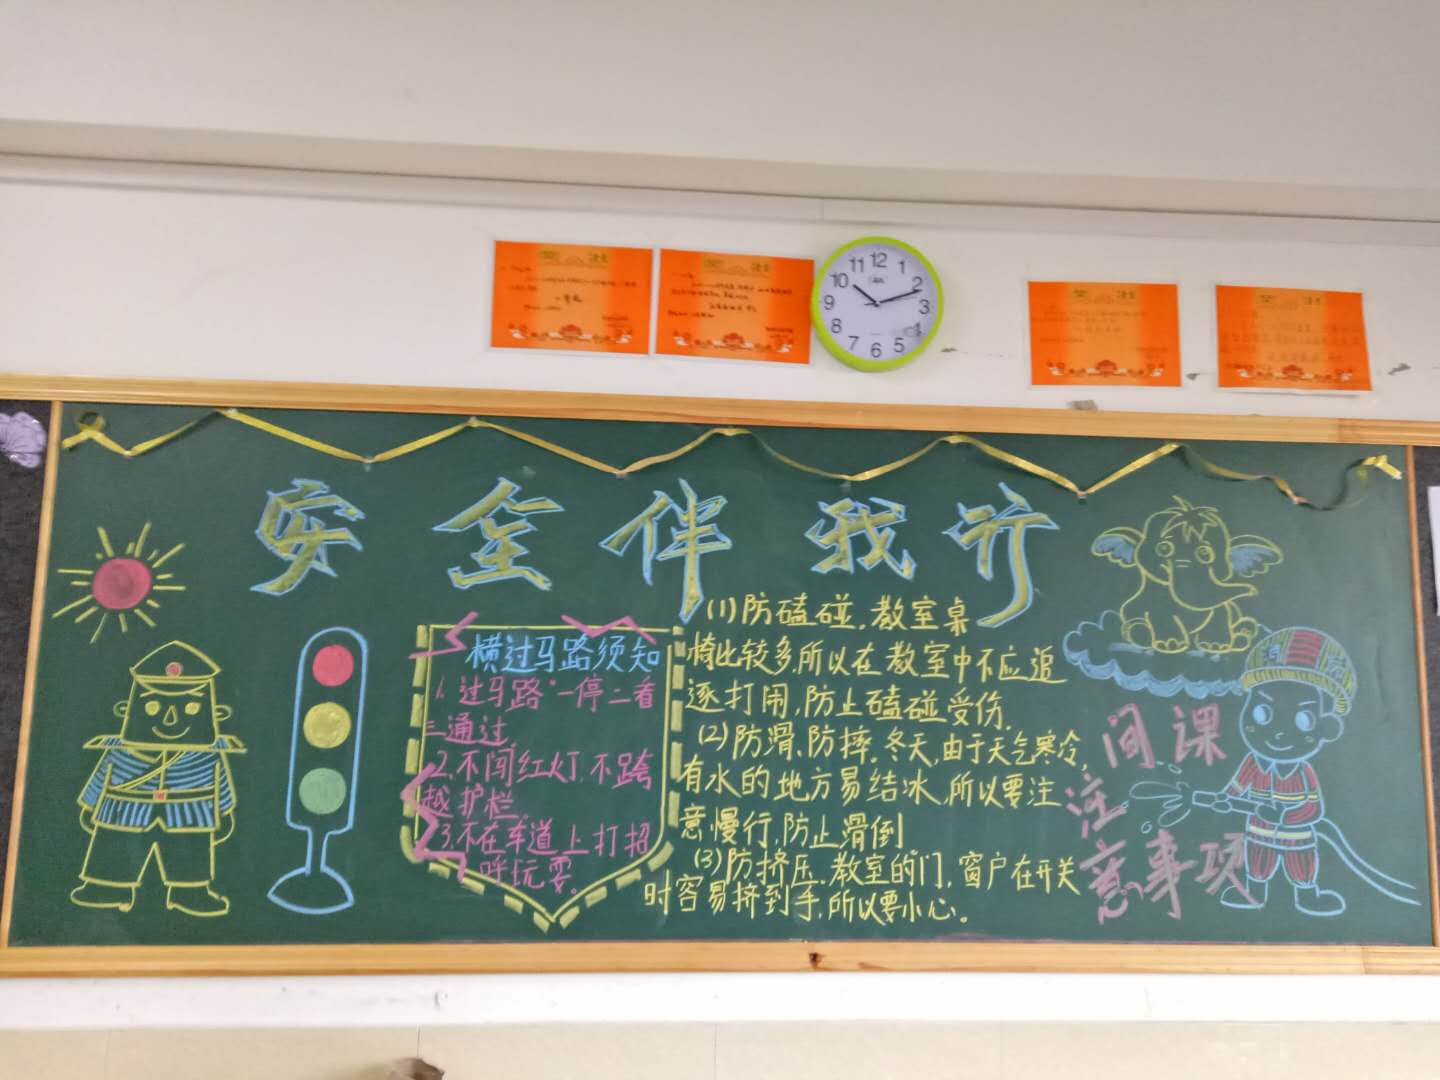 12
1
2
3
4
5
6
7
8
9
10
11
安全伴我行
横过马路须知
1.过马路"一停二看
三通过
2.不闯红灯.不跨
越护栏。
3.不在车道上打招
呼玩耍。
(1)防磕碰.教室桌
椅比较多,所以在教室中不应追
逐打闹,防止磕碰受伤.
(2)防滑.防摔.冬天,由于天气寒冷,
有水的地方易结冰,所以要注
意慢行,防止滑倒
(3)防挤压.教室的门,窗户在开关
时容易挤到手,所以要小心。
间课
注
意事项
消防